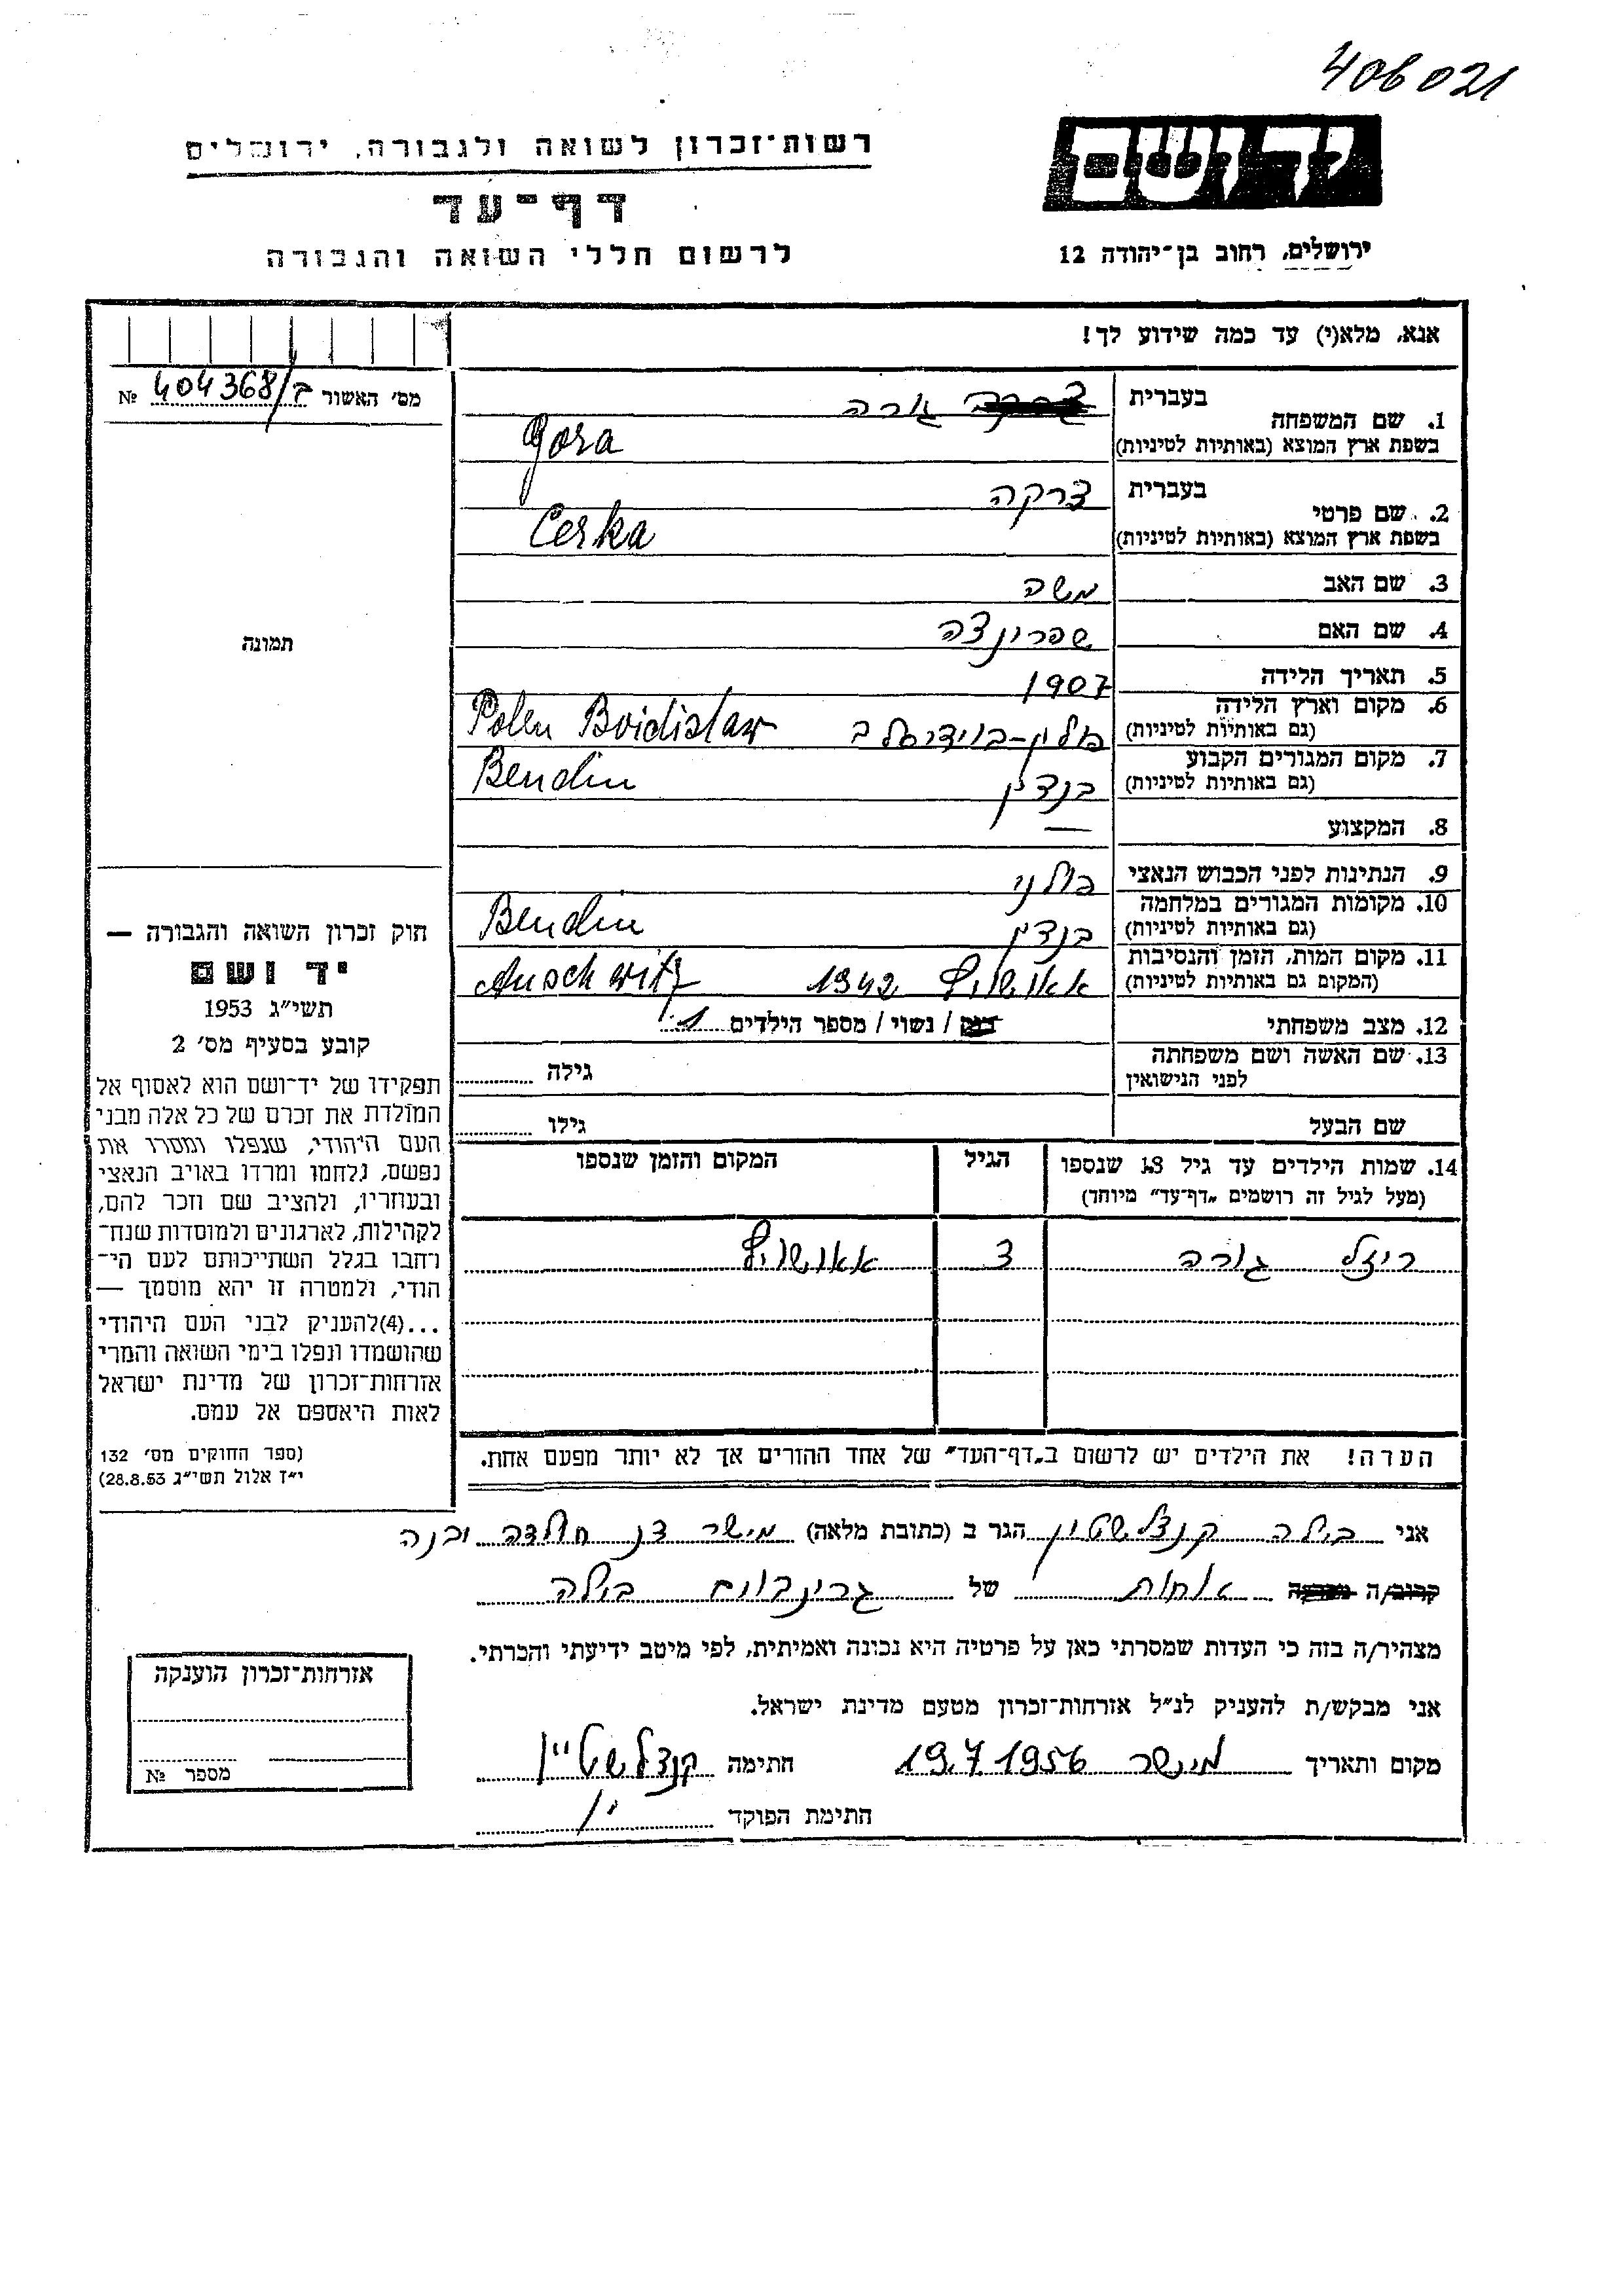 406021
יד ושם
ירושלים, רחוב בן־יהודה 12
רשות־זכרון לשואה ולגבורה, ירושלים
דף־עד
לרשום חללי השואה והגבורה
אנא, מלא(י) עד כמה שידוע לך!
מס׳ האשור 404368/ב №
תמונה
חוק זכרון השואה והגבורה —
יד ושם
תשי״ג 1953
קובע בסעיף מס׳ 2
תפקידו של יד־ושם הוא לאסוף אל
המולדת את זכרם של כל אלה מבני
העם היהודי, שנפלו ומסרו את
נפשם, נלחמו ומרדו באויב הנאצי
ובעוזריו, ולהציב שם וזכר להם,
לקהילות, לארגונים ולמוסדות שנח־
רחבו בגלל השתייכותם לעם הי־
הודי, ולמטרה זו יהא מוסמך —
...(4)להעניק לבני העם היהודי
שהושמדו ונפלו בימי השואה והמרי
אזרחות־זכרון של מדינת ישראל
לאות היאספם אל עמם.
(ספר החוקים מס׳ 132
י״ז אלול תשי״ג 28.8.53)
1. שם המשפחה
בעברית גורה
בשפת ארץ המוצא (באותיות לטיניות) Gora
2. שם פרטי
בעברית צרקה
בשפת ארץ המוצא (באותיות לטיניות) Cerka
3. שם האב משה
4. שם האם שפרינצה
5. תאריך הלידה 1907
6. מקום וארץ הלידה
(גם באותיות לטיניות) פולין-בוידיסלב Polen Boidislaw
7. מקום המגורים הקבוע
(גם באותיות לטיניות) בנדין Bendin
8. המקצוע —
9. הנתינות לפני הכבוש הנאצי פולני
10. מקומות המגורים במלחמה
(גם באותיות לטיניות) בנדין Bendin
11. מקום המות, הזמן והנסיבות
(המקום גם באותיות לטיניות) אאושויץ 1942 Auschwitz
12. מצב משפחתי רווק / נשוי / מספר הילדים 1
13. שם האשה ושם משפחתה
לפני הנישואין גילה
שם הבעל גילו
14. שמות הילדים עד גיל 18 שנספו הגיל המקום והזמן שנספו
(מעל לגיל זה רושמים „דף־עד״ מיוחד)
ריזל גורה 3 אאושויץ
הערה! את הילדים יש לרשום ב„דף־העד״ של אחד ההורים אך לא יותר מפעם אחת.
אני בילה קנדלשטין הגר ב (כתובת מלאה) מישר דנ חולדה יבנה
קרוב/ה מכר/ה אחות של גרינבוים בילה
מצהיר/ה בזה כי העדות שמסרתי כאן על פרטיה היא נכונה ואמיתית, לפי מיטב ידיעתי והכרתי.
אני מבקש/ת להעניק לנ״ל אזרחות־זכרון מטעם מדינת ישראל.
מקום ותאריך מישר 19.7.1956 חתימה קנדלשטיין
חתימת הפוקד
אזרחות־זכרון הוענקה
מספר №